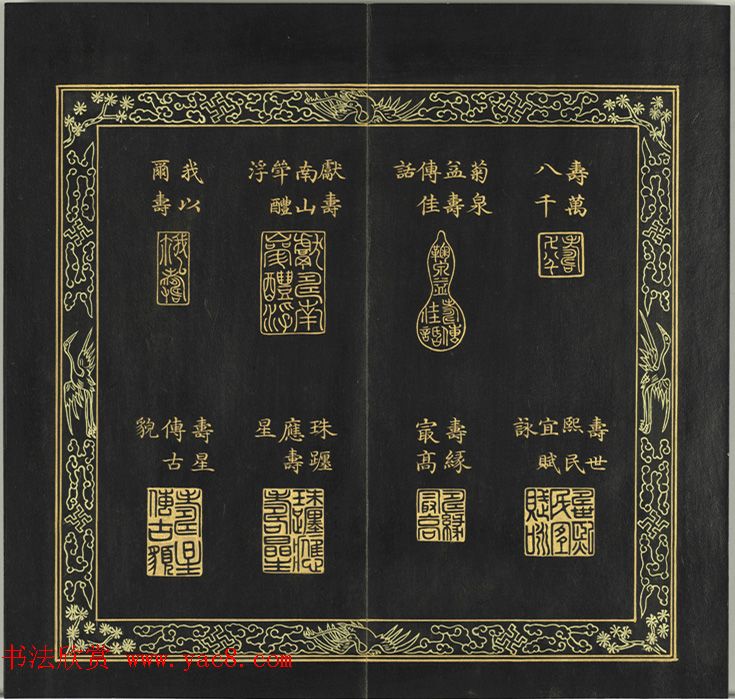 壽萬
八千
菊泉
益壽
傳佳
話
獻壽
南山
醴
浮
我以
爾壽
壽世
熙民
宜賦
詠
壽緣
冣高
珠躔
應壽
星
壽星
傳古
貌
书法欣赏 www.yac8.com